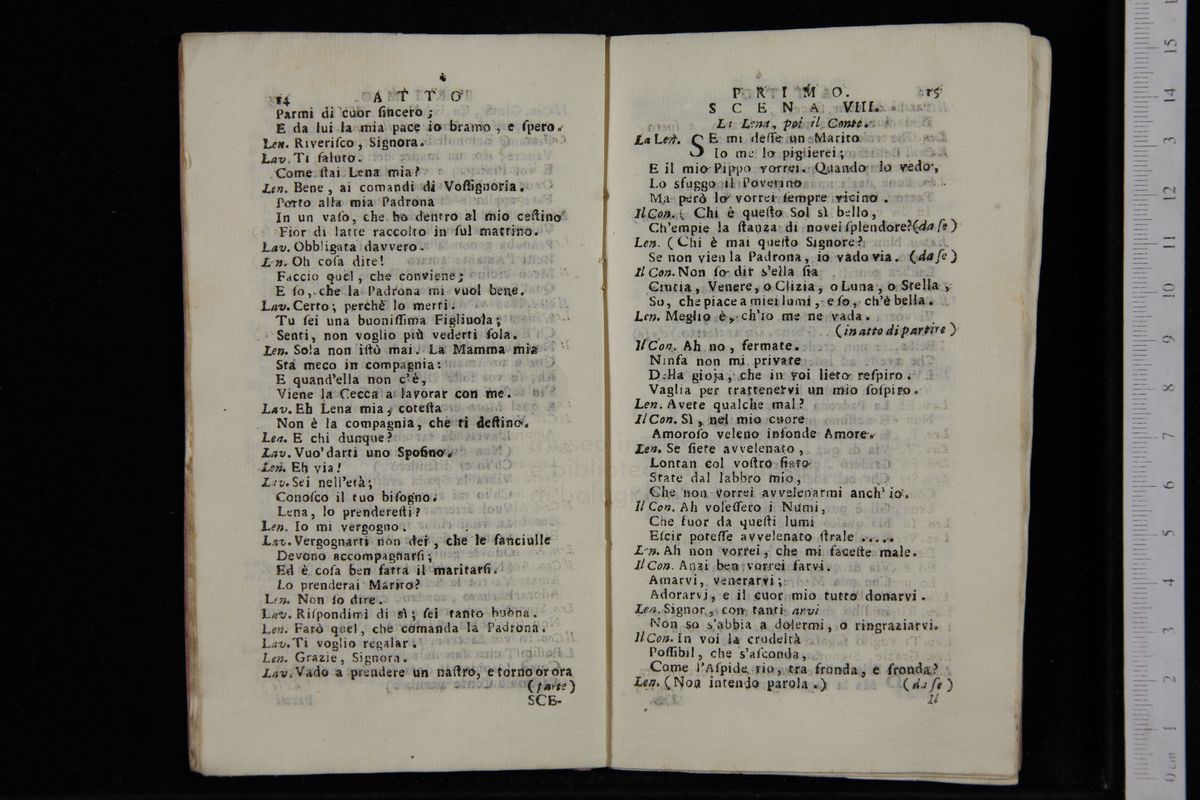 14 ATTO
Parmi di cuor ſincero;
E da lui la mia pace io bramo, e ſpero.
Len. Riveriſco, Signora.
Lav. Ti ſaluto.
Come ſtai Lena mia?
Len. Bene, ai comandi di Voſſignoria.
Porto alla mia Padrona
In un vaſo, che ho dentro al mio ceſtino
Fior di latte raccolto in ſul mattino.
Lav. Obbligata davvero.
Len. Oh coſa dite!
Faccio quel, che conviene;
E ſo, che la Padrona mi vuol bene.
Lav. Certo; perchè lo merti.
Tu ſei una buoniſſima Figliuola;
Senti, non voglio più vederti ſola.
Len. Sola non iſtò mai. La Mamma mia
Stà meco in compagnia:
E quand'ella non c'è,
Viene la Cecca a lavorar con me.
Lav. Eh Lena mia, coteſta
Non è la compagnia, che ti deſtino.
Len. E chi dunque?
Lav. Vuo' darti uno Spoſino.
Len. Eh via!
Lav. Sei nell'età;
Conoſco il tuo biſogno.
Lena, lo prendereſti?
Len. Io mi vergogno.
Lav. Vergognarti non dei, che le fanciulle
Devono accompagnarſi;
Ed è coſa ben fatta il maritarſi.
Lo prenderai Marito?
Len. Non ſo dire.
Lav. Riſpondimi di sì; ſei tanto buona.
Len. Farò quel, che comanda la Padrona.
Lav. Ti voglio regalar.
Len. Grazie, Signora.
Lav. Vado a prendere un naſtro, e torno or ora
(parte)
SCE-
PRIMO. 15
SCENA VIII.
La Lena, poi il Conte.
La Len. SE mi deſſe un Marito
Io me lo piglierei;
E il mio Pippo vorrei. Quando lo vedo,
Lo sfuggo il Poverino
Ma però lo vorrei ſempre vicino.
Il Con. ( Chi è queſto Sol sì bello,
Ch'empie la ſtanza di novei ſplendore? (da ſe)
Len. (Chi è mai queſto Signore?
Se non vien la Padrona, io vado via. (da ſe)
Il Con. Non ſo dir s'ella ſia
Cintia, Venere, o Clizia, o Luna, o Stella,
So, che piace a miei lumi, e ſo, ch'è bella.
Len. Meglio è, ch'io me ne vada.
(in atto di partire)
Il Con. Ah no, fermate.
Ninfa non mi private
Della gioja, che in voi lieto reſpiro.
Vaglia per trattenervi un mio ſoſpiro.
Len. Avete qualche mal?
Il Con. Sì, nel mio cuore
Amoroſo veleno infonde Amore.
Len. Se ſiete avvelenato,
Lontan col voſtro fiato
State dal labbro mio,
Che non vorrei avvelenarmi anch' io.
Il Con. Ah voleſſero i Numi,
Che fuor da queſti lumi
Eſcir poteſſe avvelenato ſtrale .....
Len. Ah non vorrei, che mi faceſte male.
Il Con. Anzi ben vorrei farvi.
Amarvi, venerarvi;
Adorarvi, e il cuor mio tutto donarvi.
Len. Signor, con tanti arvi
Non so s'abbia a dolermi, o ringraziarvi.
Il Con. In voi la crudeltà
Poſſibil, che s'aſconda,
Come l'Aſpide rio, tra fronda, e fronda?
Len. (Non intendo parola.) (da ſe)
Il